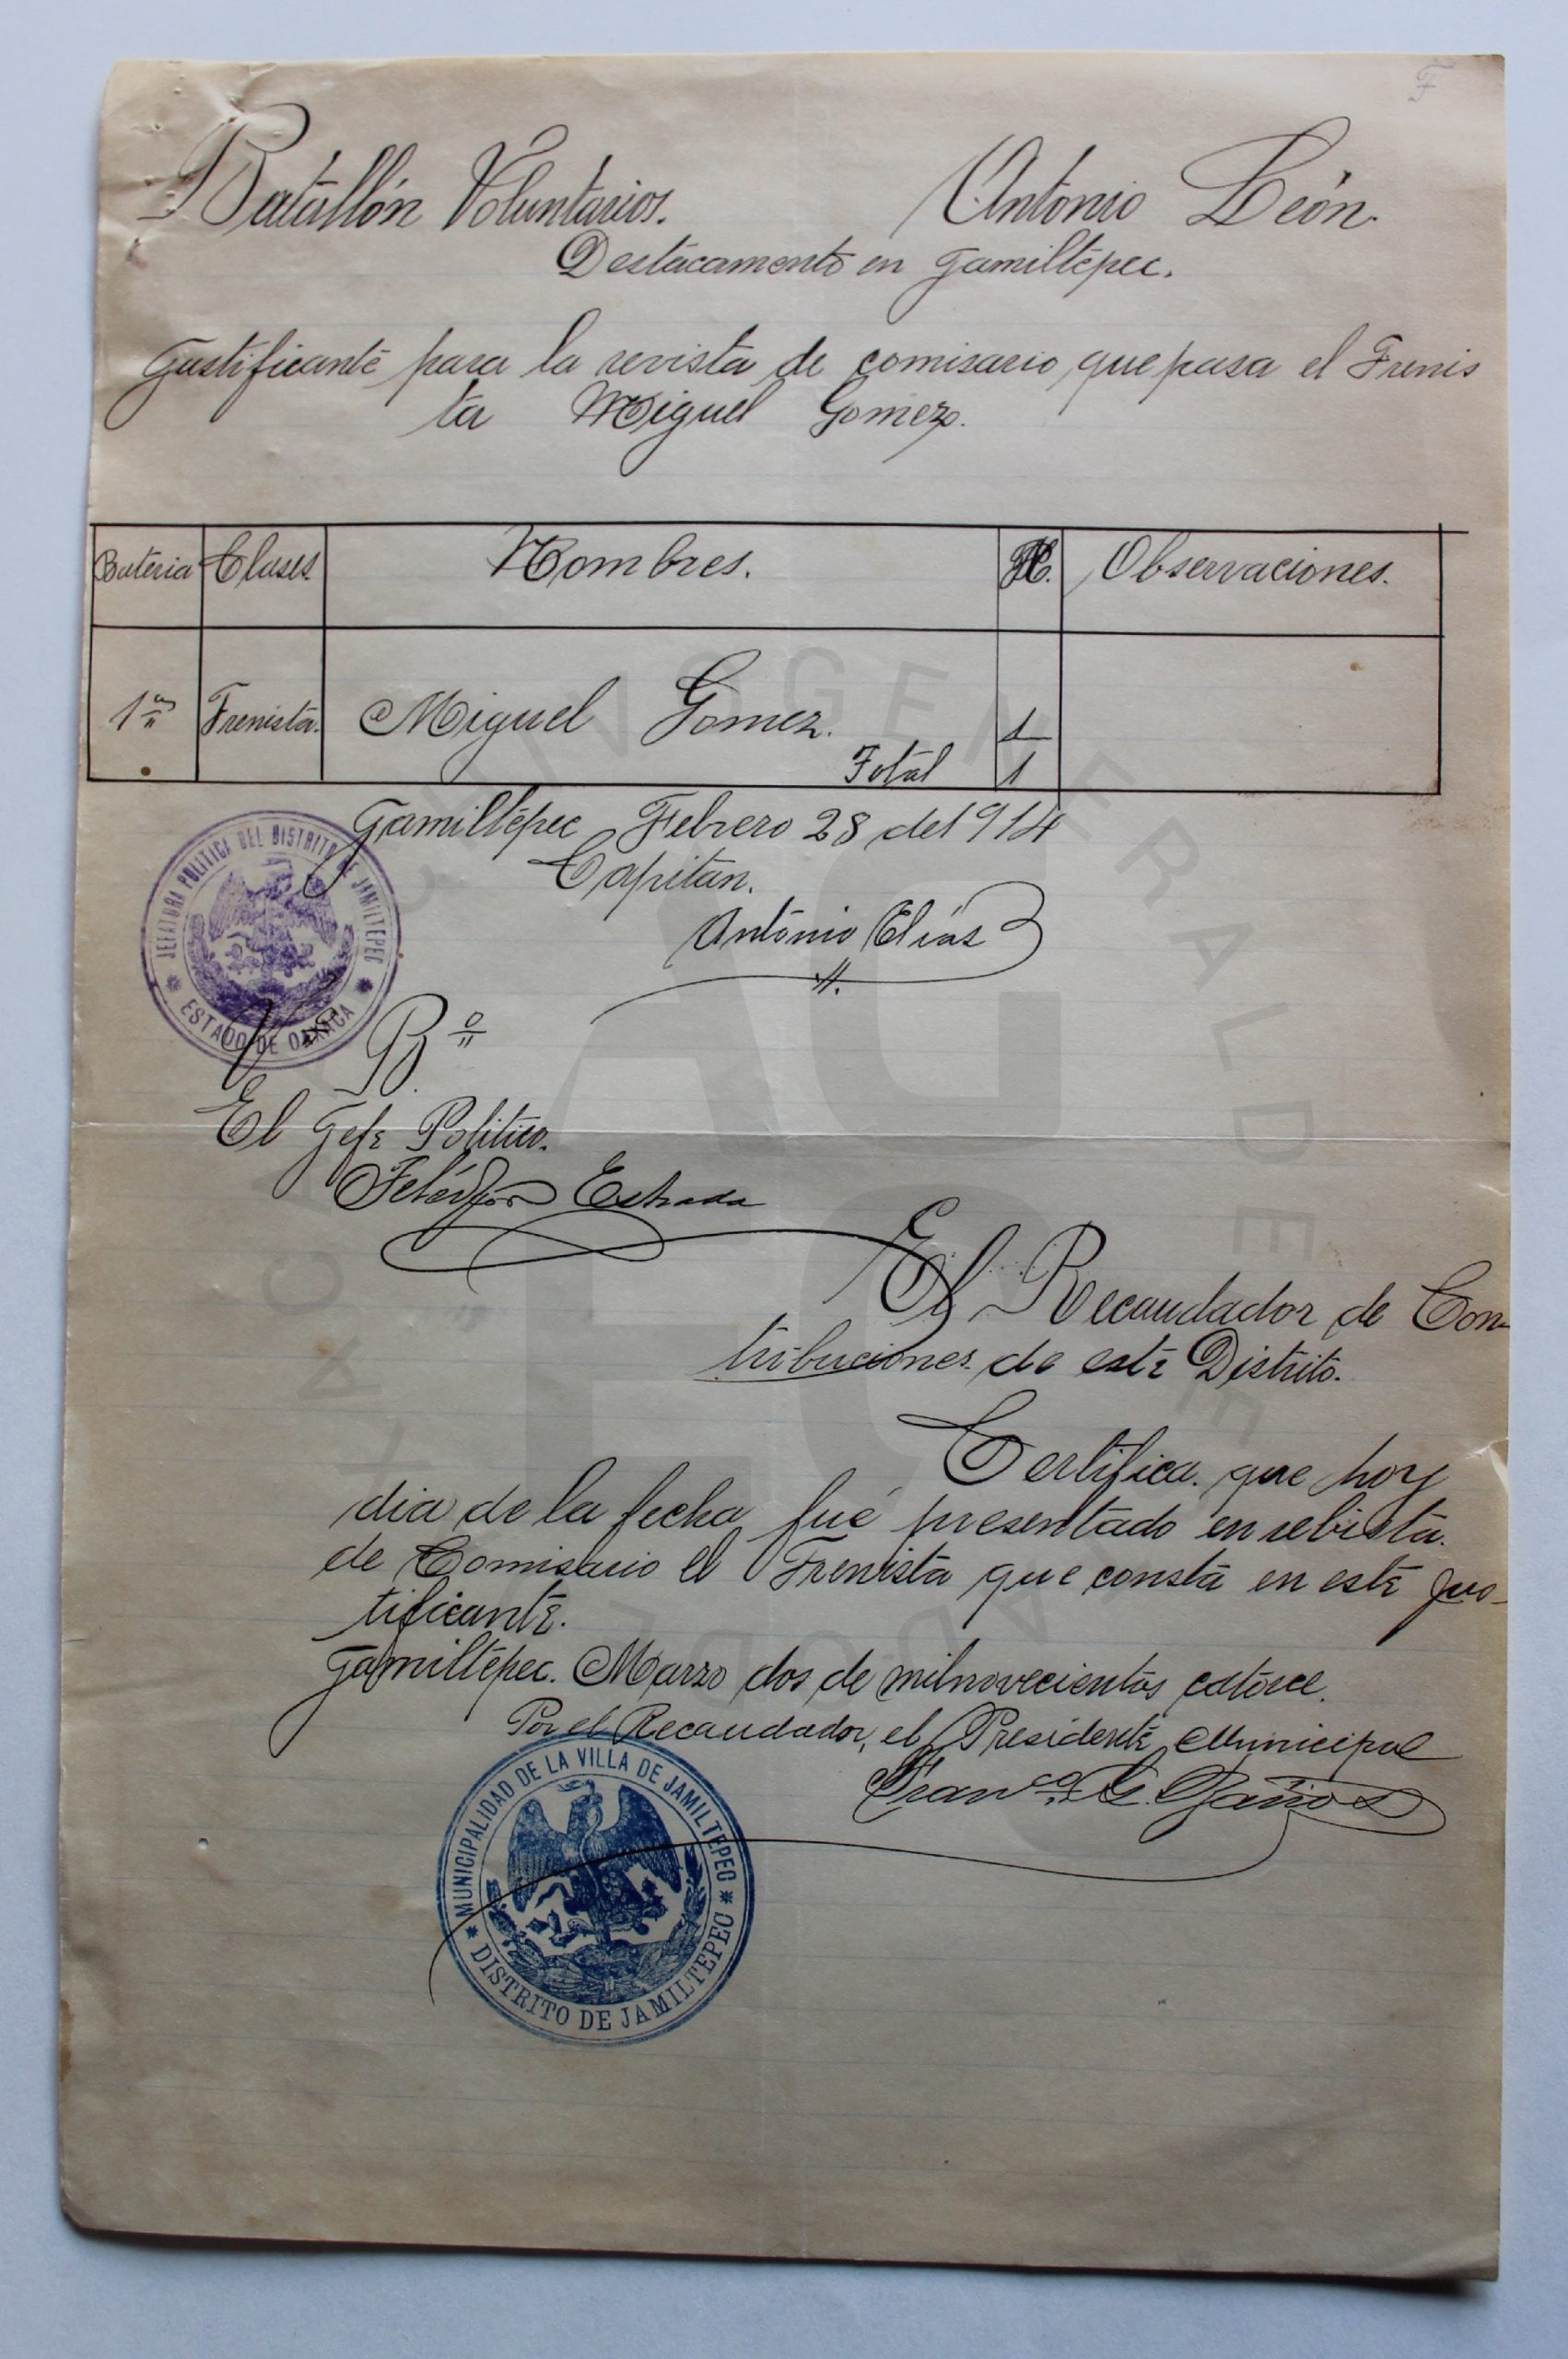 F
Batallón Voluntarios. Antonio León.
Destacamento en Jamiltepec.
Justificante para la revista de comisario que pasa el Trenis
ta Miguel Gomez.
Bateria Clases Nombres. H. Observaciones.
1ª Trenista. Miguel Gomez. 1
Total 1
Jamiltepec Febrero 28 de 1914
Capitan.
Antonio Elías
JEFATURA POLITICA DEL DISTRITO DE JAMILTEPEC
ESTADO DE OAXACA
Vº Bº
El Gefe Politico.
Telésfor Estrada
El Recaudador de Con-
tribuciones de este Distrito.
Certifica. que hoy
dia de la fecha fué presentado en rebista.
de Comisario el Trenista que consta en este jus-
tificante.
Jamiltepec. Marzo dos de milnovecientos catorce.
Por el Recaudador, el Presidente Municipal
Franco. G. Baños
MUNICIPALIDAD DE LA VILLA DE JAMILTEPEC
DISTRITO DE JAMILTEPEC